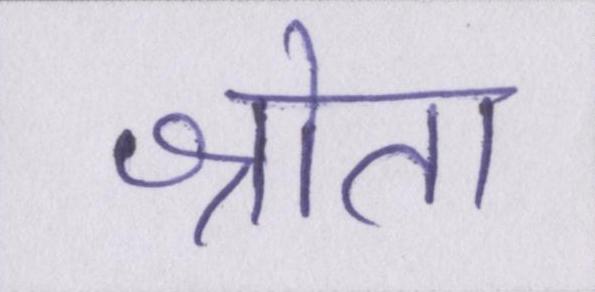 श्रोता